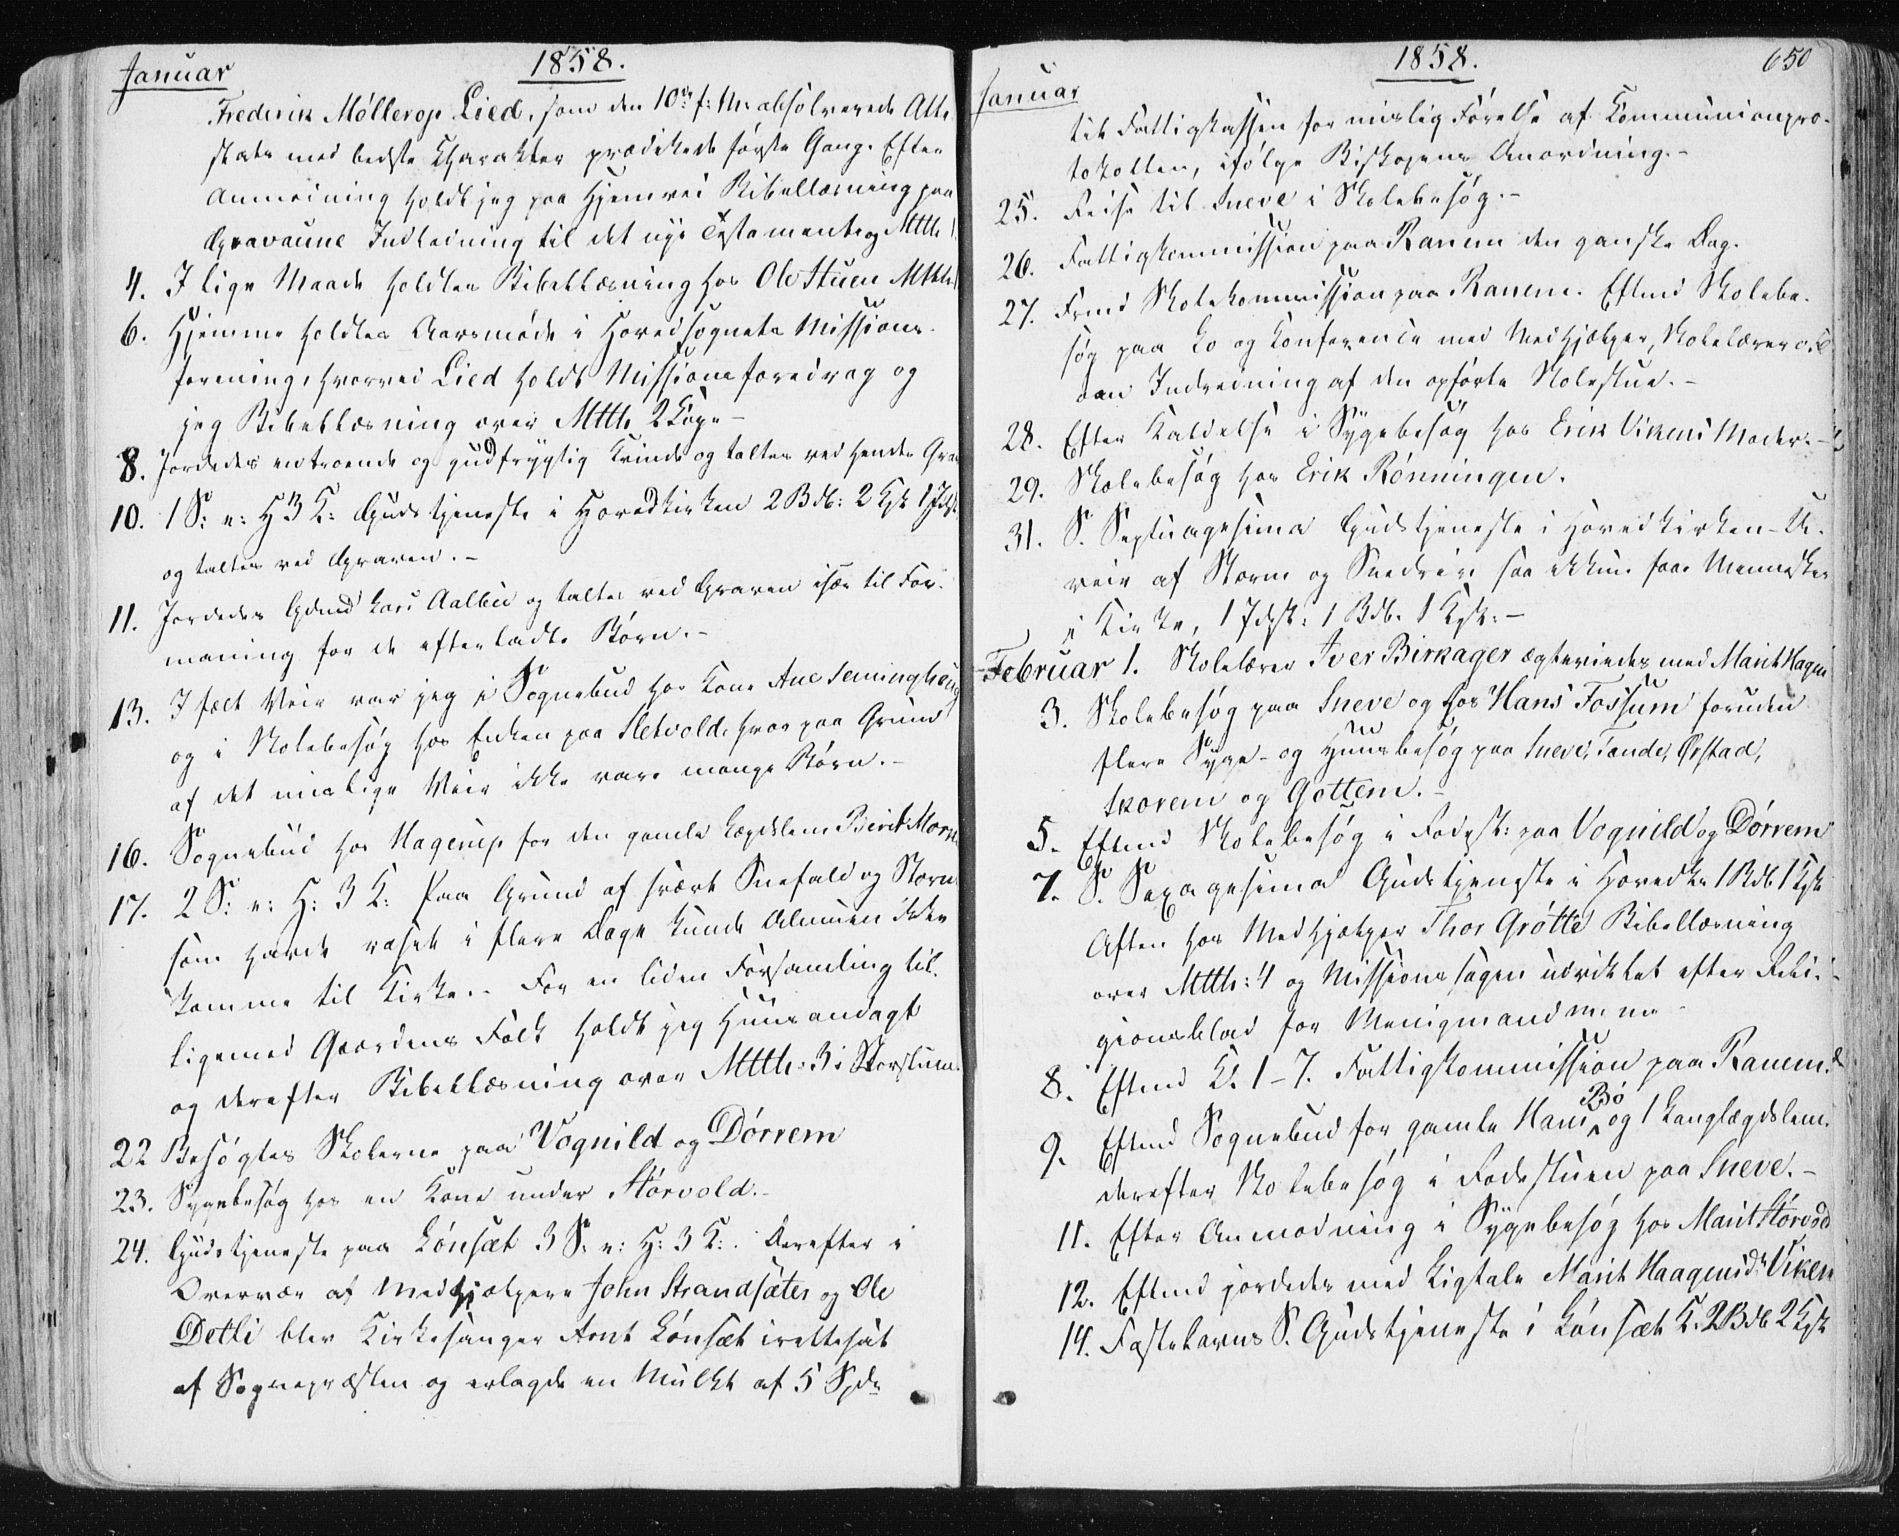 Januar
1858.
Frederik Møllerop Lied, som den 10de f: M: absolverede Atte-
stats med bedste Charakter prædikede første Gang. Efter
Anmodning holdt jeg paa Hjemvei Bibellæsning paa
Gravaune Indledning til det nye Testamente og Mtth 1
4. I lige Maade holdtes Bibellæsning hos Ole Stuen Mtth
6. Hjemme holdtes Aarsmøde i Hovedsognets Missions-
forening, hvorved Lied holdt Missionsforedrag og
jeg Bibellæsning over Mtth 2 Cap. –
8. Jordedes en troende og gudfrygtig Kvinde og taltes ved hendes Grav
10. 1 S: e: H 3 K: Gudstjeneste i Hovedkirken 2 Bdb: 2 Kgk 1 Jdsf.
og taltes ved Graven. –
11. Jordedes Gdmd Lars Aalbu og taltes ved Graven især til For-
maning for de efterladte Børn. –
13. I fælt Veir var jeg i Sognebud hos Kone Ane Seminghoug
og i Skolebesøg hos Enken paa Sletvold, hvor paa Grund
af det mislige Veir ikke vare mange Børn. –
16. Sognebud hos Hagerup for den gamle Lægdslem Berit Morse
17. 2 S: e: H: 3 K: Paa Grund af svært Snefald og Storm
som havde raset i flere Dage kunde Almuen ikke
komme til Kirke. – For en liden Forsamling til-
ligemed Gaardens Folk holdt jeg Huusandagt
og derefter Bibellæsning over Mtth: 3 i Storstuen.
22 Besøgtes Skolerne paa Vognild og Dørrem
23. Sygebesøg hos en Kone under Størvold. –
24. Gudstjeneste paa Lønsæt 3 S: e: H: 3 K: . Derefter i
Overvær af Medhjælpere John Strandsæter og Ole
Detli blev Kirkesanger Arnt Lønsæt irettesat
af Sognepræsten og erlagde en Mulkt af 5 Spd
Januar
1858.
650
til Fattigkassen for mislig Førelse af Communionpro-
tokollen, ifølge Biskopens Anordning. –
25. Reise til Sneve i Skolebesøg. –
26. Fattigkommission paa Ranem den ganske Dag.
27. Frmd Skolekommission paa Ranem. Eftmd Skolebe-
søg paa Lo og Conference med Medhjælper, Skolelærer o. fl
om Indredning af den opførte Skolestue. –
28. Efter Kaldelse i Sygebesøg hos Erik Vikens Moder. –
29. Skolebesøg hos Erik Rønningen.
31. S. Septuagesima Gudstjeneste i Hovedkirken – U-
veir af Storm og Snedriv saa ikkun faa Mennesker
i Kirke, 1 Jdsf: 1 Bdb. 1 Kgk: –
Februar 1. Skolelærer Iver Birkager ægteviedes med Marit Hagen
3. Skolebesøg paa Sneve og hos Hans Fossum foruden
flere Syge- og Huusbesøg paa Sneve, Tande, Ørstad,
Skorem og Gottem. –
5. Eftmd Skolebesøg i Fodgst: paa Vognild og Dørrem
7. S. Sexagesima Gudstjeneste i Hovedk 1 Bdb 1 Kgk
Aften hos Medhjælper Thor Grøtte Bibellæsning
over Mtth: 4 og Missionssagen udviklet efter Reli-
gionsblad for Menigmand m. m –
8. Eftmd Kl. 1–7. Fattigkommission paa Ranem.
9. Eftmd Sognebud for gamle Hans Bø og 1 Langlægdslem.
derefter Skolebesøg i Fodestuen paa Sneve. –
11. Efter Anmodning i Sygebesøg hos Marit Størvold
12. Eftmd jordedes med Ligtale Marit Haagensdr Viken
14. Fastelavns S. Gudstjeneste i Lønsæt K. 2 Bdb 2 Kgk